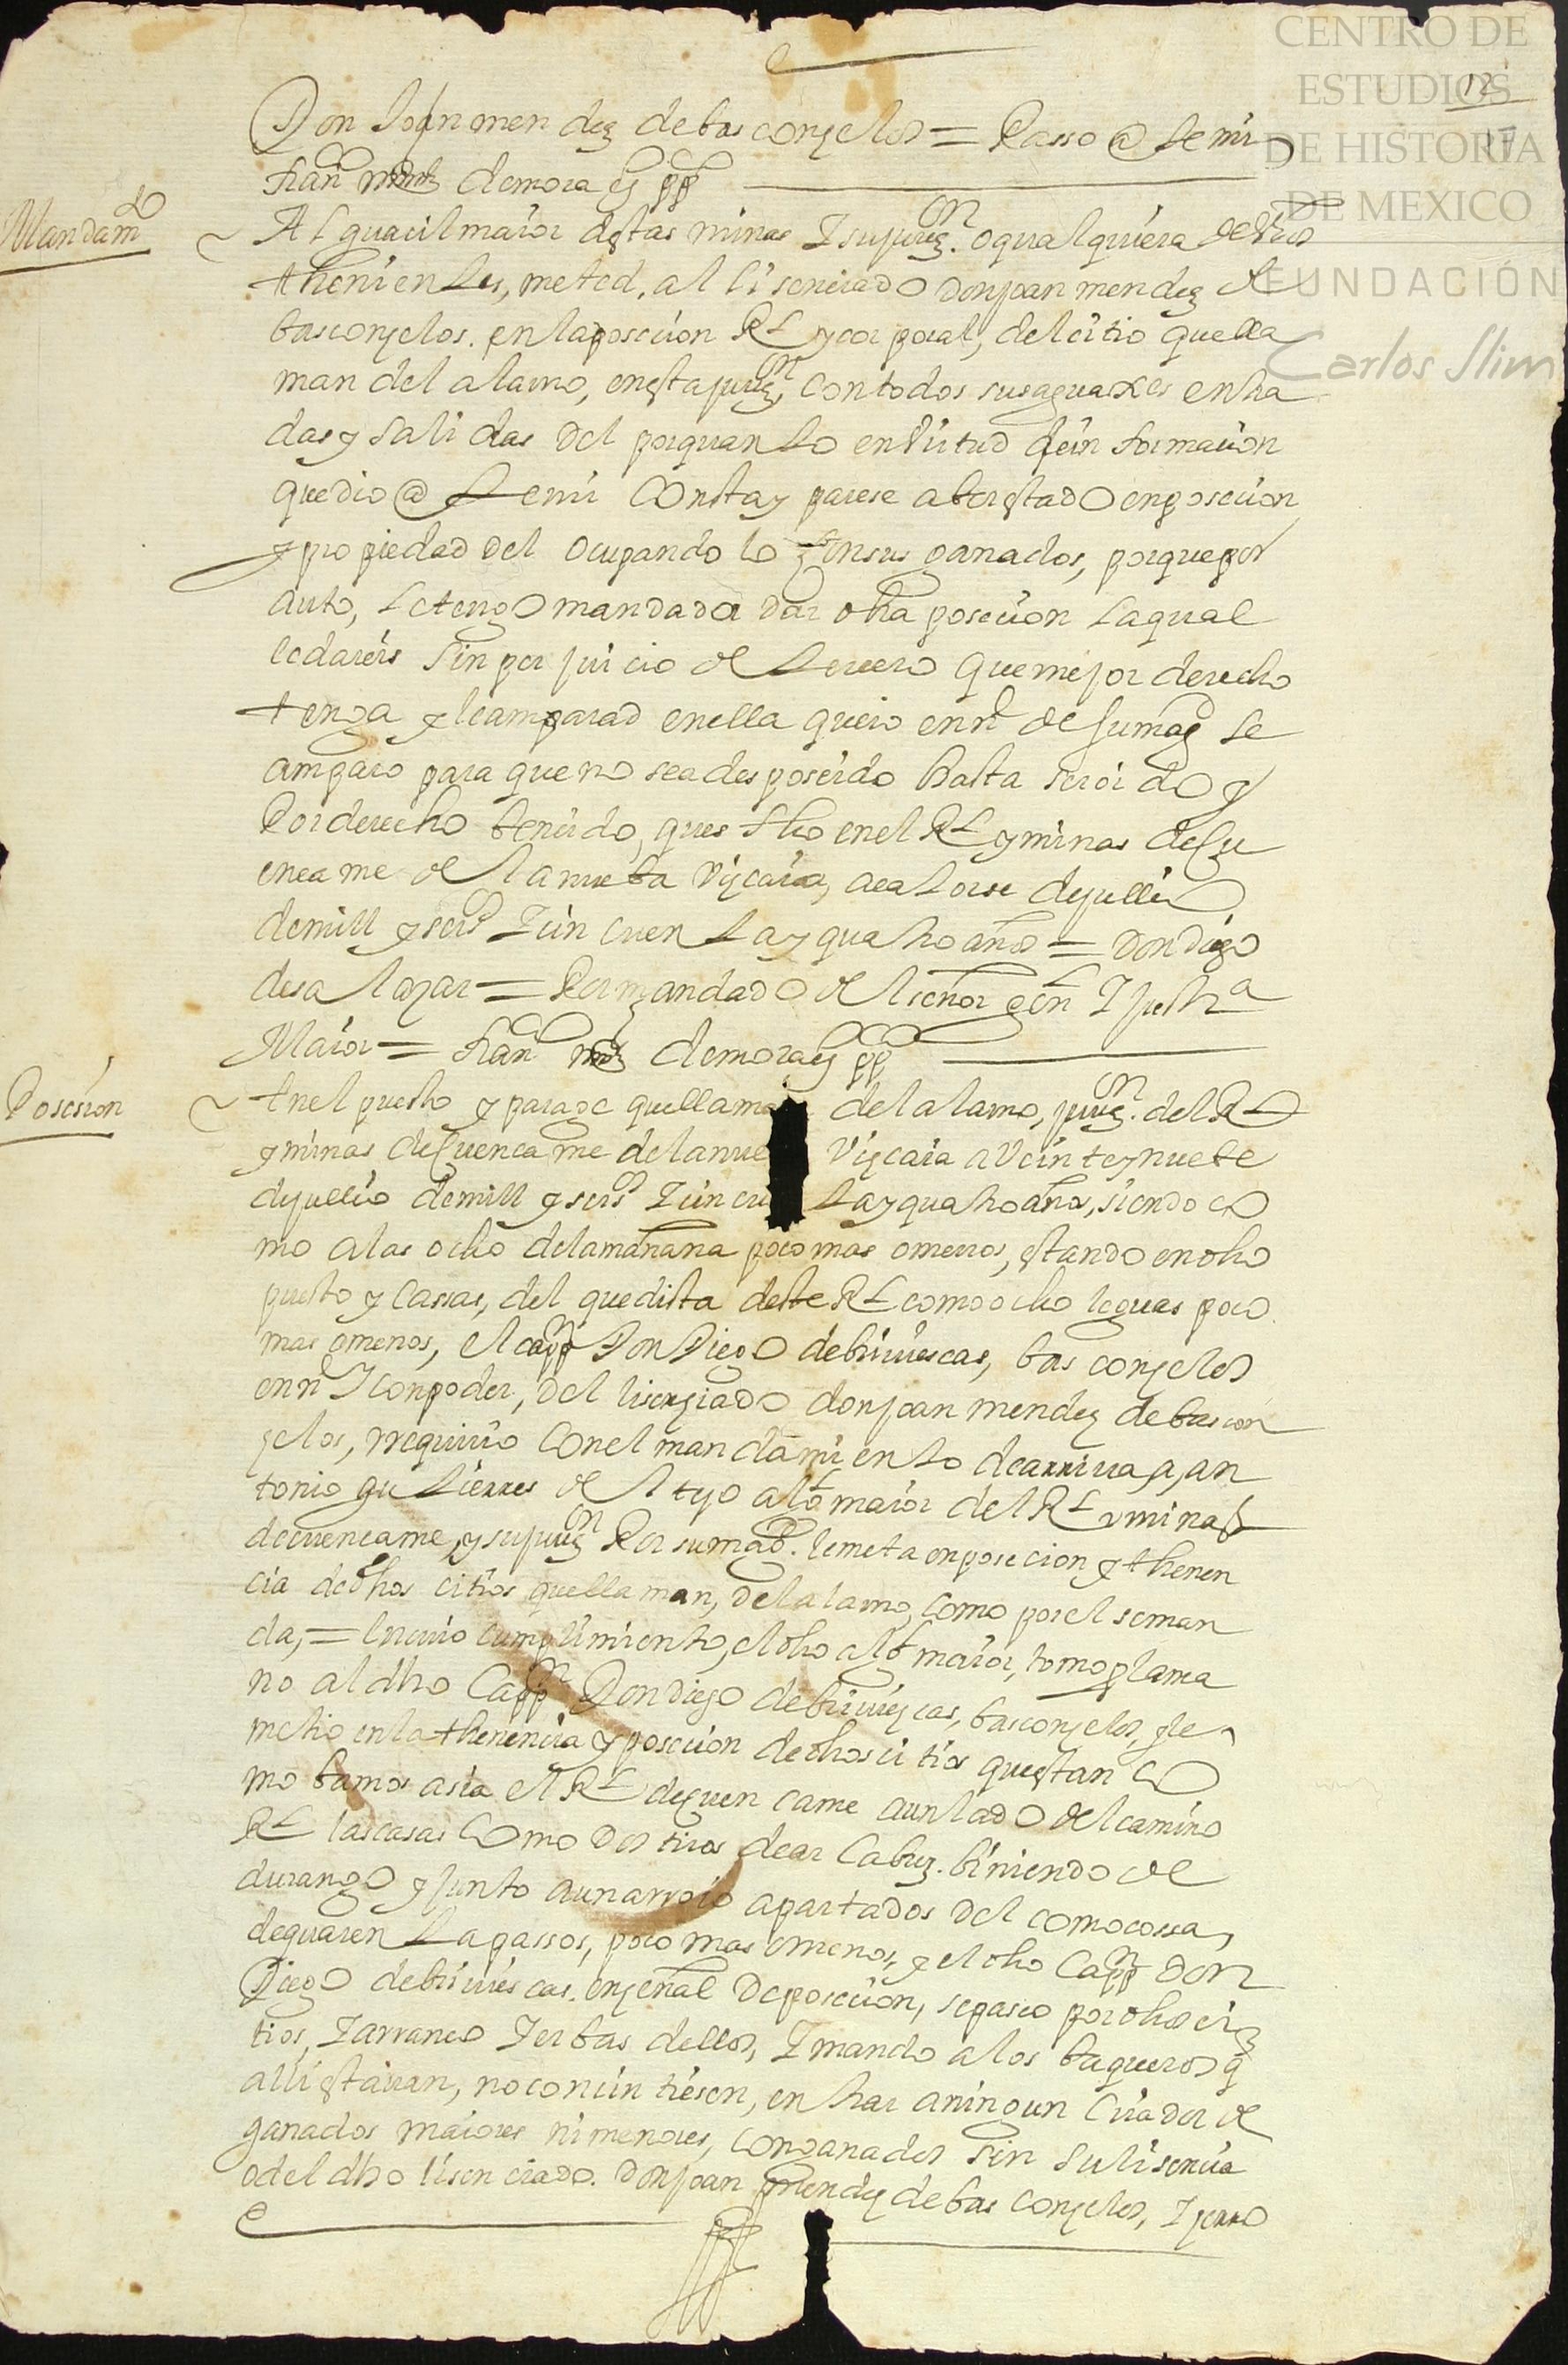 CENTRO DE
ESTUDIOS
DE HISTORIA
DE MEXICO
FUNDACIÓN
Carlos Slim
12
17
Don Joan mendez de basconzelos = Passo @ te mi
fran^co mrnz de mora es^no pp^co
Mandam^to
Alguacil maior destas minas I su juriz^on. o qualquiera de bros
thenientes, meted, al lisenciado don joan mendez de
basconzelos. en la posecion R^l y corporal, del citio que lla
man del alamo, en esta juriz^on, con todos sus aguaxes entra
das y salidas del por quanto en birtud de ynformacion
que dio @ te mi Consta y parese aber estado en posecion
y propiedad del ocupando lo con sus ganados, porque por
auto, le tengo mandado dar dha posecion la qual
le dareis sin perjuicio de tersero que mejor derecho
tenga y le amparad en ella que io en n^e de su mag^d le
amparo para que no sea desposeido hasta ser oido y
Por derecho bencido, ques fho en el R^l y minas de Cu
encame de la nueba viscaia, a catorse de jullio
de mill y seis^os I cincuenta y quatro años = Don diego
de salazar = Por mandado del señor gen^l I justi^a
Maior = fran^co mrnz de mora es^no pp^co
Posesion
En el puesto y parage que llaman del alamo, juriz^on. del R^l
y minas de Cuencame de la nue viscaia a veinte y nuebe
de jullio de mill y seis^os I cincu ta y quatro años, siendo co
mo a las ocho de la mañana poco mas o menos, estando en dho
puesto y Cassas, del que dista deste R^l como ocho leguas poco
mas o menos, el capp^n Don Diego de bribiescas, bas conzelos
en n^e I con poder, del lisenziado don joan mendez de bascon
zelos, requirio Con el mandamiento de arriva, a, an
tonio gutierres del tejo alg^l maior del R^l y minas
de cuencame, y su juriz^on Por su mag^d. le meta en posecion y thenen
cia de dhos citios que llaman, del alamo, como por el se man
da, = En cuio cumplimiento, el dho alg^l maior, tomo por la ma
no al dho Capp^n Don diego de bribiescas, basconzelos, y le
metio en la thenencia y posecion de dhos citios questan co
mo bamos asia el R^l de quencame a un lado del camino
R^l las casas Como dos tiros de arcabuz. biniendo de
durango y junto a un arroio apartados del como cossa,
de quarenta passos, poco mas o menos, y el dho Capp^n don
Diego de bribiescas. en señal de posecion, se paseo por dhos ci
tios, I arranco Ierbas dellos, I mando a los baqueros q
alli estavan, no concintiesen, entrar a ningun Criador de
ganados maiores ni menores, con ganados sin su lisencia
o del dho lisenciado. Don joan mendez de bas conzelos, I jerro